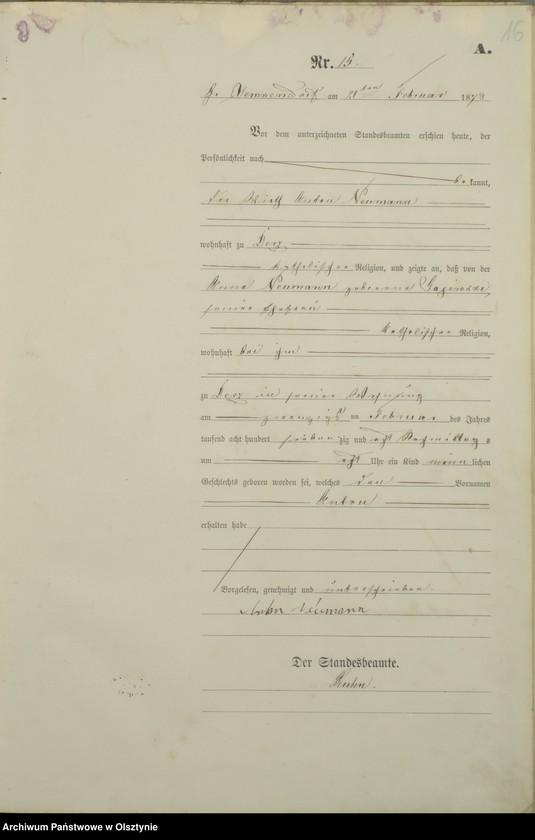 16
A.
Nr. 15.
am 21ten Februar 1878
Vor dem unterzeichneten Standesbeamten erschien heute, der
Persönlichkeit nach
be kannt,
der Wirth Anton Neumann
wohnhaft zu Derz
katholischer Religion, und zeigte an, daß von der
Anna Neumann geborene
seiner Ehefrau
katholischer Religion,
wohnhaft bei ihm
zu Derz in seiner Wohnung
am zwanzigst en Februar des Jahres
tausend acht hundert sieben zig und acht Nachmittag s
um acht Uhr ein Kind männ lichen
Geschlechts geboren worden sei, welches den Vornamen
Anton
erhalten habe
Vorgelesen, genehmigt und unterschrieben.
Anton Neumann
Der Standesbeamte.
Kuhn.
Archiwum Państwowe w Olsztynie